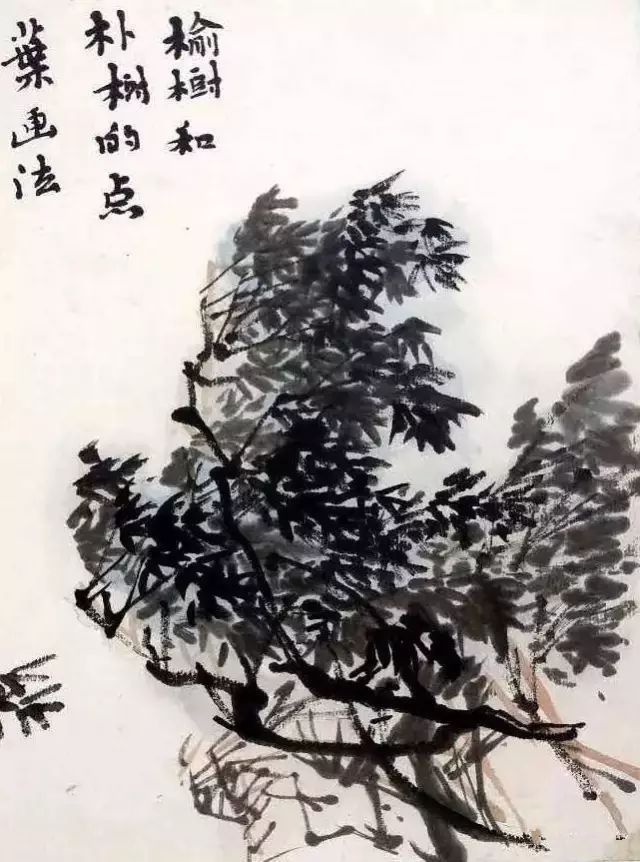 榆樹和
朴树的点
葉画法